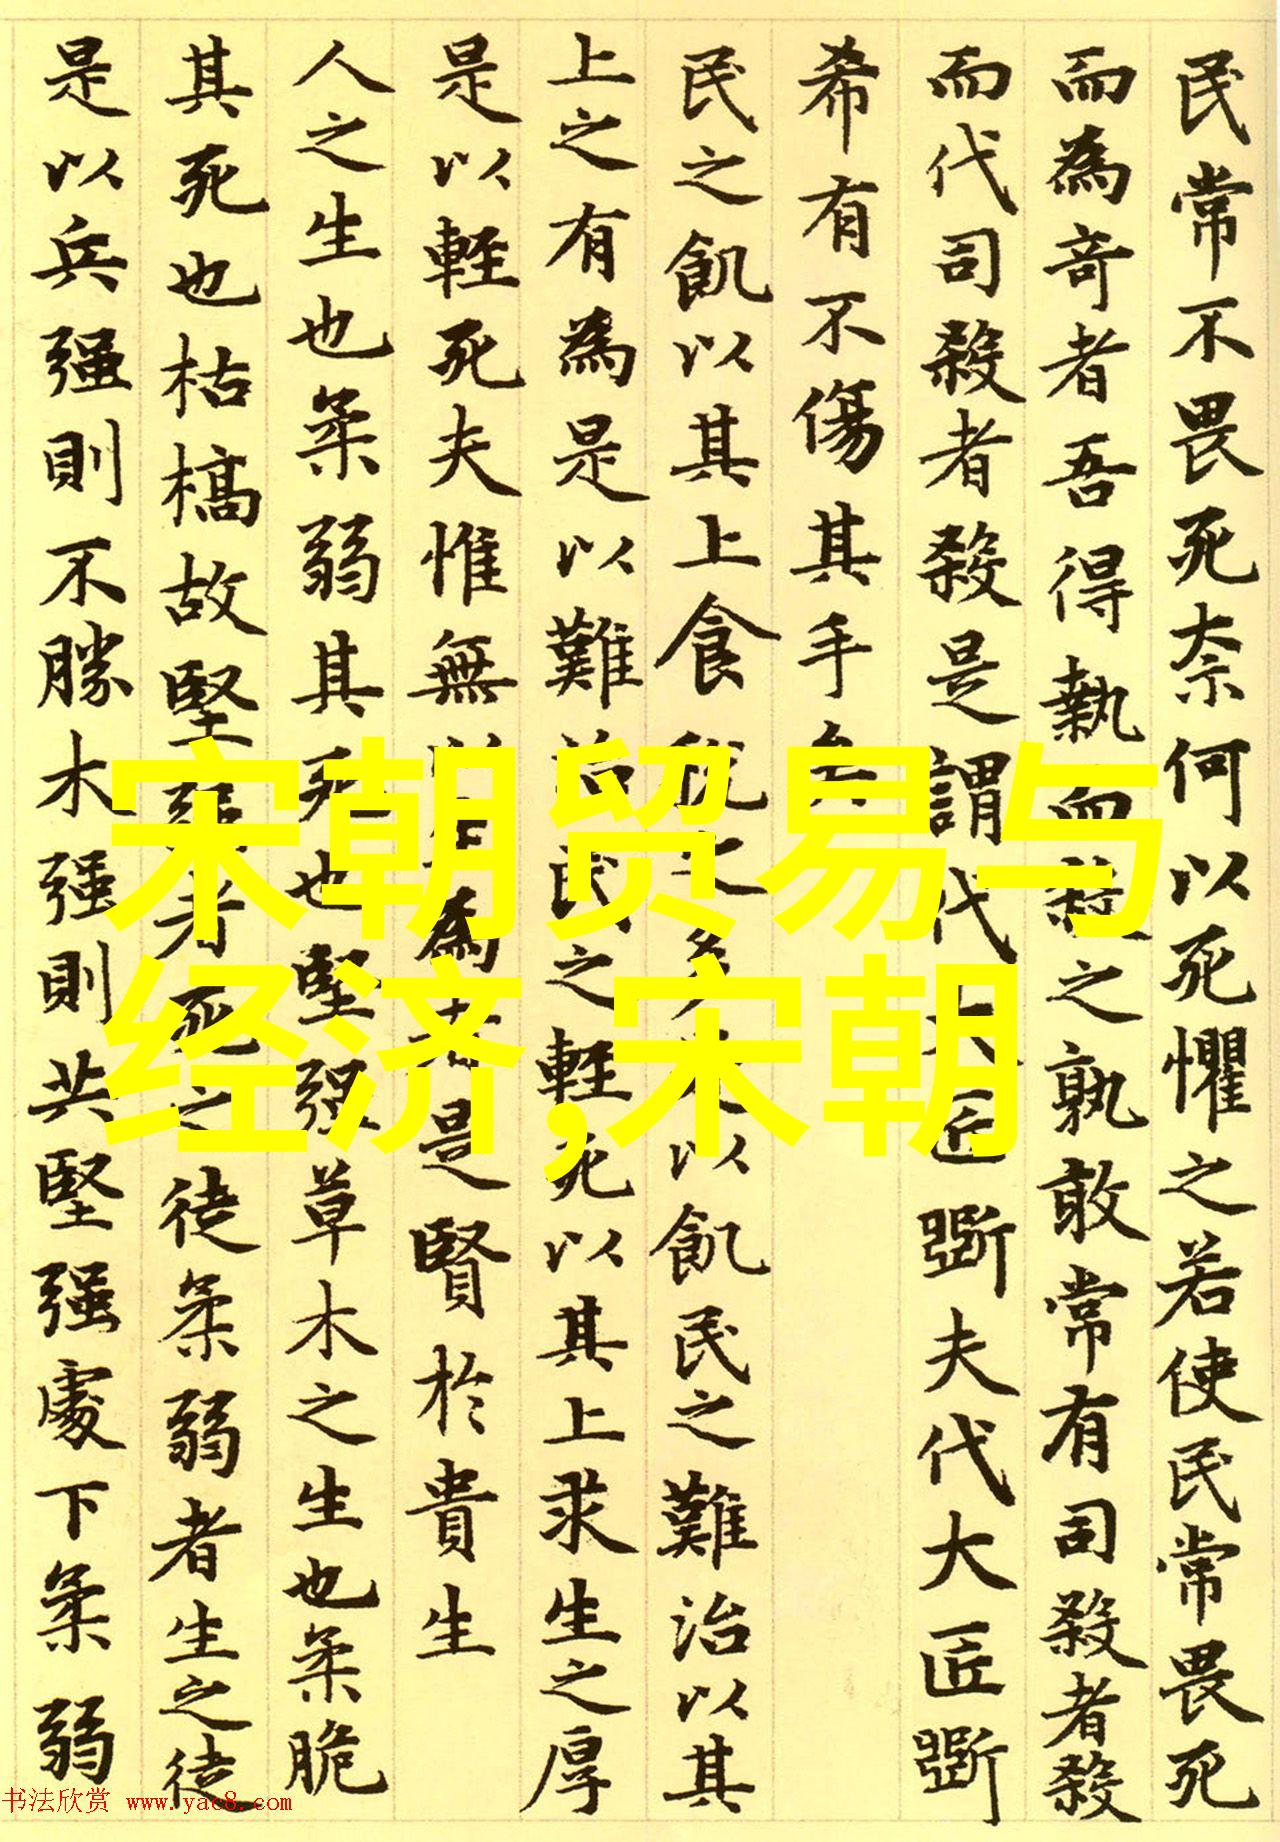 民常不畏死奈何以死懼之若使民常畏死
而為竒者吾得執而殺之孰敢常有司殺者殺
而代司殺者殺是謂代大匠斲夫代大匠斲
希有不傷其手矣
民之飢以其上食稅之多是以飢民之難治以其
上之有為是以難治民之輕死以其上求生之厚
是以輕死夫惟無以生為者是賢於貴生
人之生也柔弱其死也堅强草木之生也柔脆
其死也枯槁故堅强者死之徒柔弱者生之徒
是以兵强則不勝木强則共堅强處下柔弱
宋朝贸易与
经济,宋朝
书法欣赏 www.yac8.com